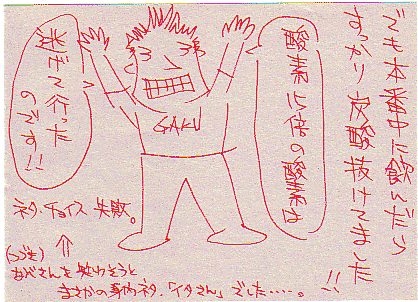 でも本番中に飲んだら
すっかり炭酸抜けてました!!
酸素
倍の酸素は
GAKU
逃げて行った
のです!!
ネタ・チョイス失敗。
(つづき)
⇑
さんを
まさかの身内ネタ、「イタさん」でした……。